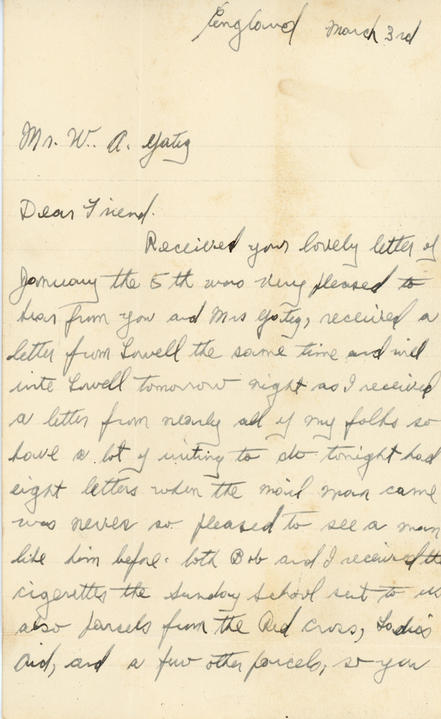 England March 3rd
Mr. W. A. Yates
Dear Friend.
Received your lovely letter of
January the 5th was very pleased to
hear from you and Mrs Yates, received a
letter from Lowell the same time and will
write Lowell tomorrow night as I received
a letter from nearly all of my folks so
have a lot of writing to do tonight had
eight letters when the mail man came
was never so pleased to see a man
like him before. both Bob and I received the
cigerettes the Sunday School sent to us
also parcels from the Red cross, Ladies
Aid, and a few other parcels, so you